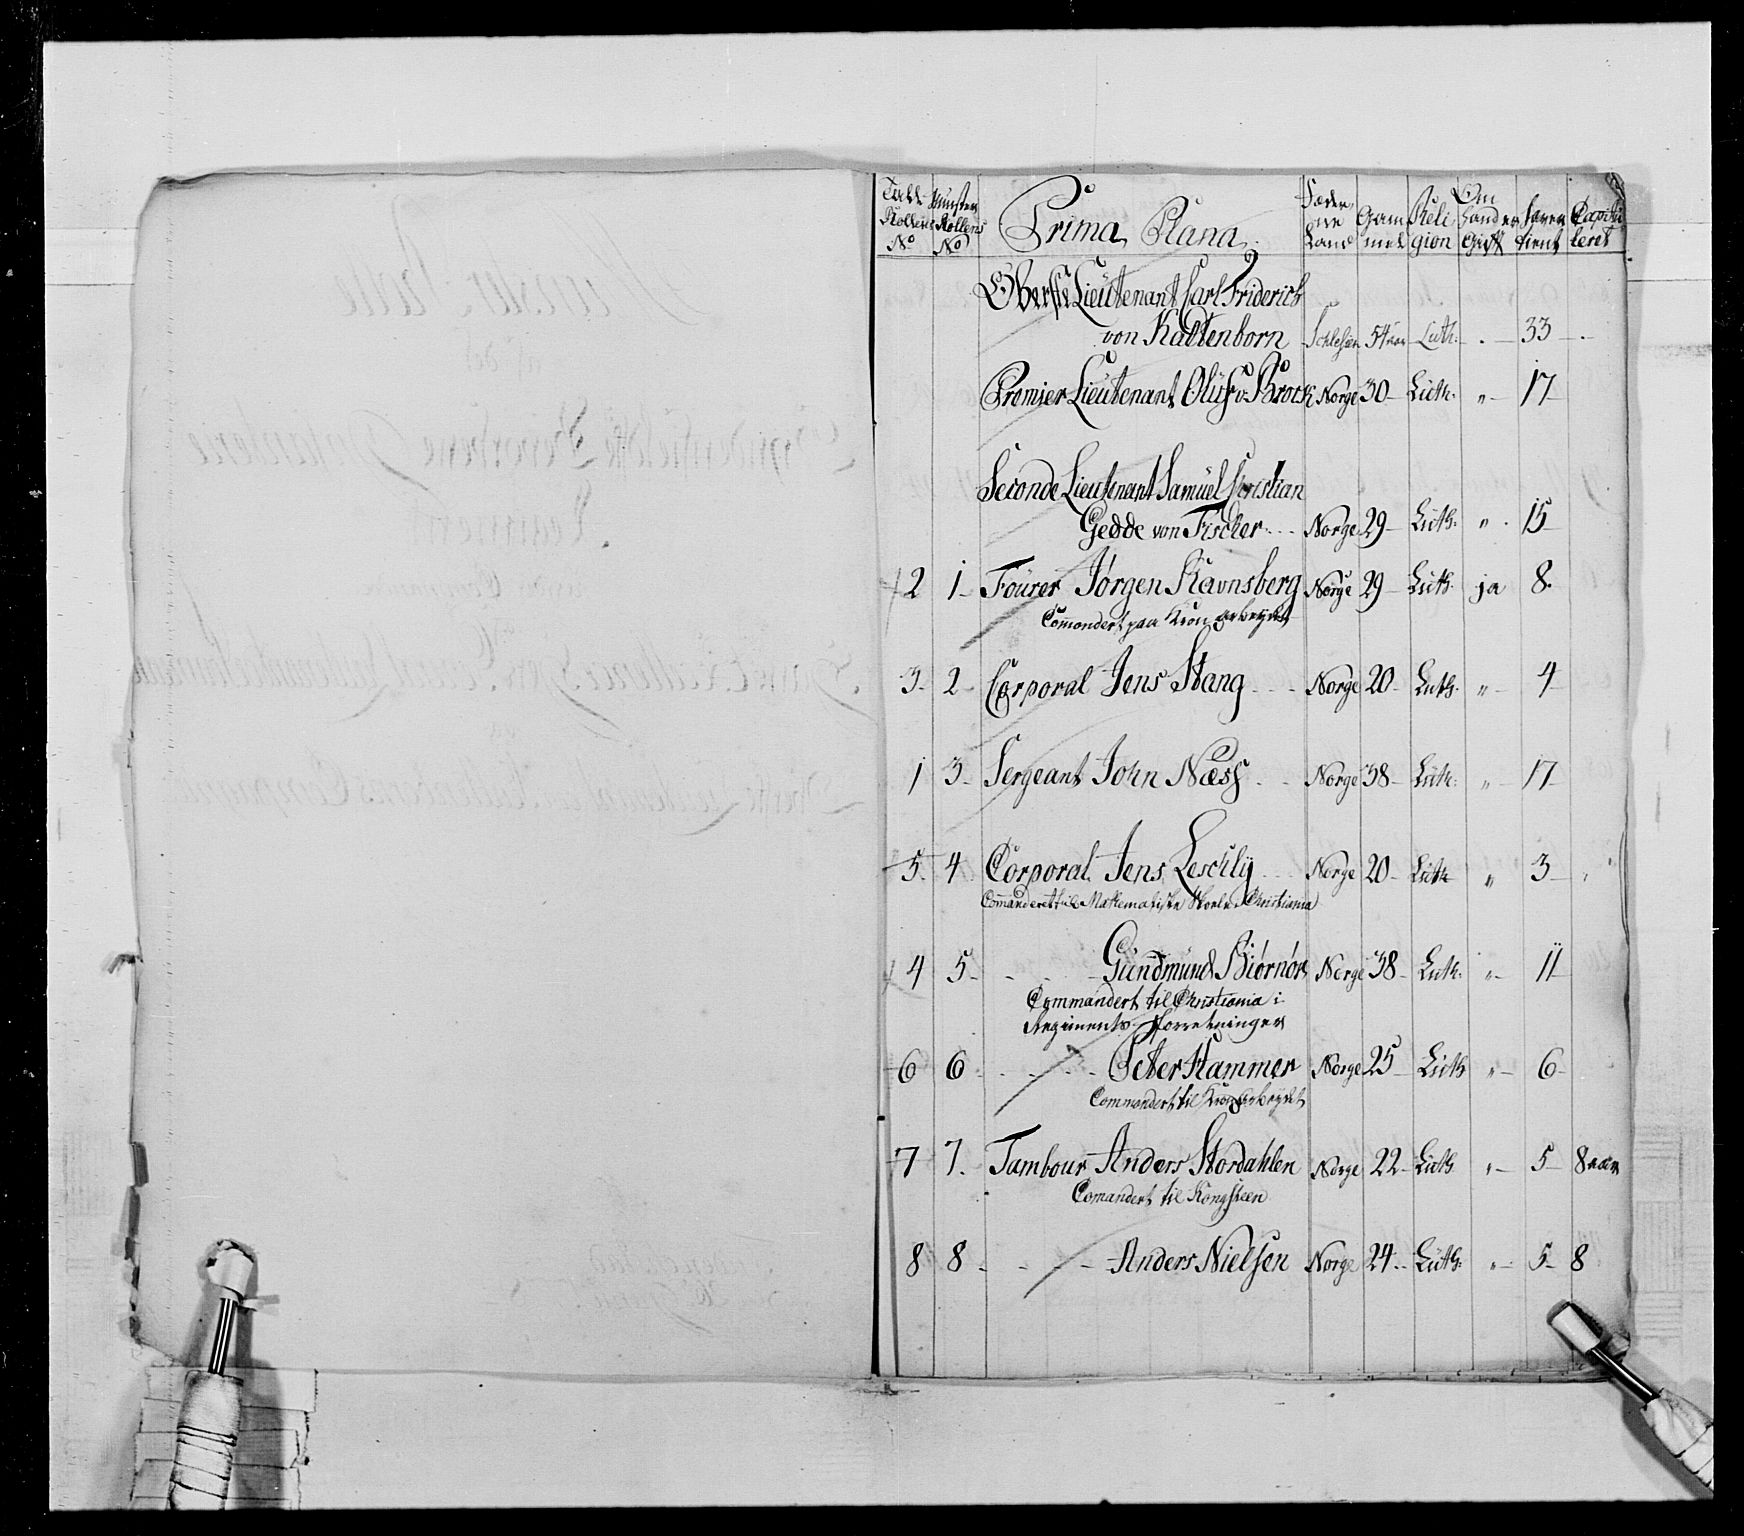 Prima Plana
Tabl: Rollens No | Munster Rollens No | Fæderne Land | Gammel | Religion | Om hand er Gift | haver tient | Capituleret
Oberste Lieutenant Carl Friderich
von Kaltenborn Schlesien 54 aar Luth: 33
Premier Lieutenant Oluf v. Brock Norge 30 Luth: " 17
Seconde Lieutenant Samuel Christian
Gedde von Fischer Norge 29 Luth: " 15
2 1 Fourer Jørgen Ravnsberg Norge 29 Luth: ja 8
Commandert paa Kron arbeydet
3 2 Corporal Jens Stang Norge 20 Luth: " 4
1 3 Sergeant John Næss Norge 38 Luth: " 17
5 4 Corporal Jens Leschly Norge 20 Luth " 3
Commanderet til Mathematiske Skole i Christiania
4 5 Gundmund Biørnør Norge 38 Luth: " 11
Commandert til Christiania i
Regiments Forretninger
6 6 Peter Hammer Norge 25 Luth " 6
Commandert til Kron arbeydet
7 7 Tambour Anders Stordahlen Norge 22 Luth " 5 8 aar
Comandert til Kongsteen
8 8 Anders Nielsen Norge 24 Luth: " 5 8